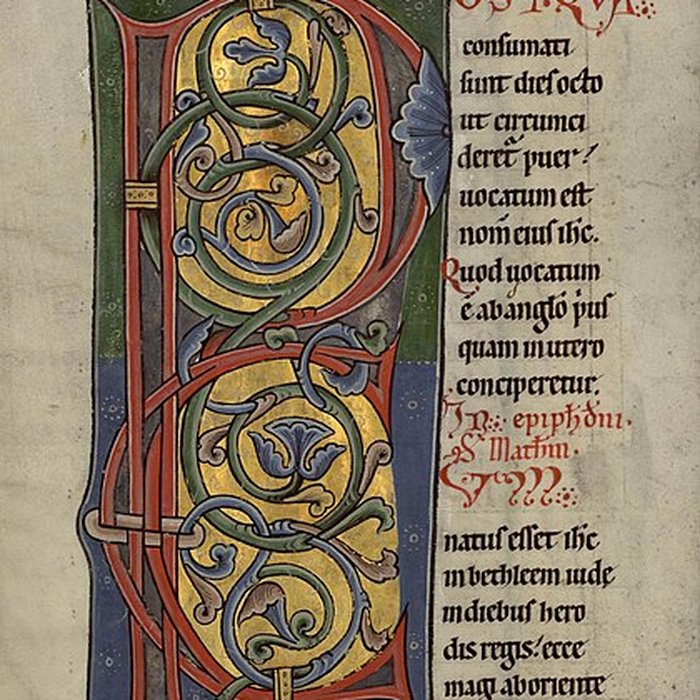 OSTQVA
consumati
sunt dies octo
ut circumci
deret᷒ puer!
uocatum est
nom̄ eius ihc.
Quod uocatum
ē ab anglo p̄us
quam in utero
conciperetur.
In epiph dni.
S Mathm.
CVM
natus esset ihc
in bethleem iudę
in diebus hero
dis regis! ecce
magi ab oriente